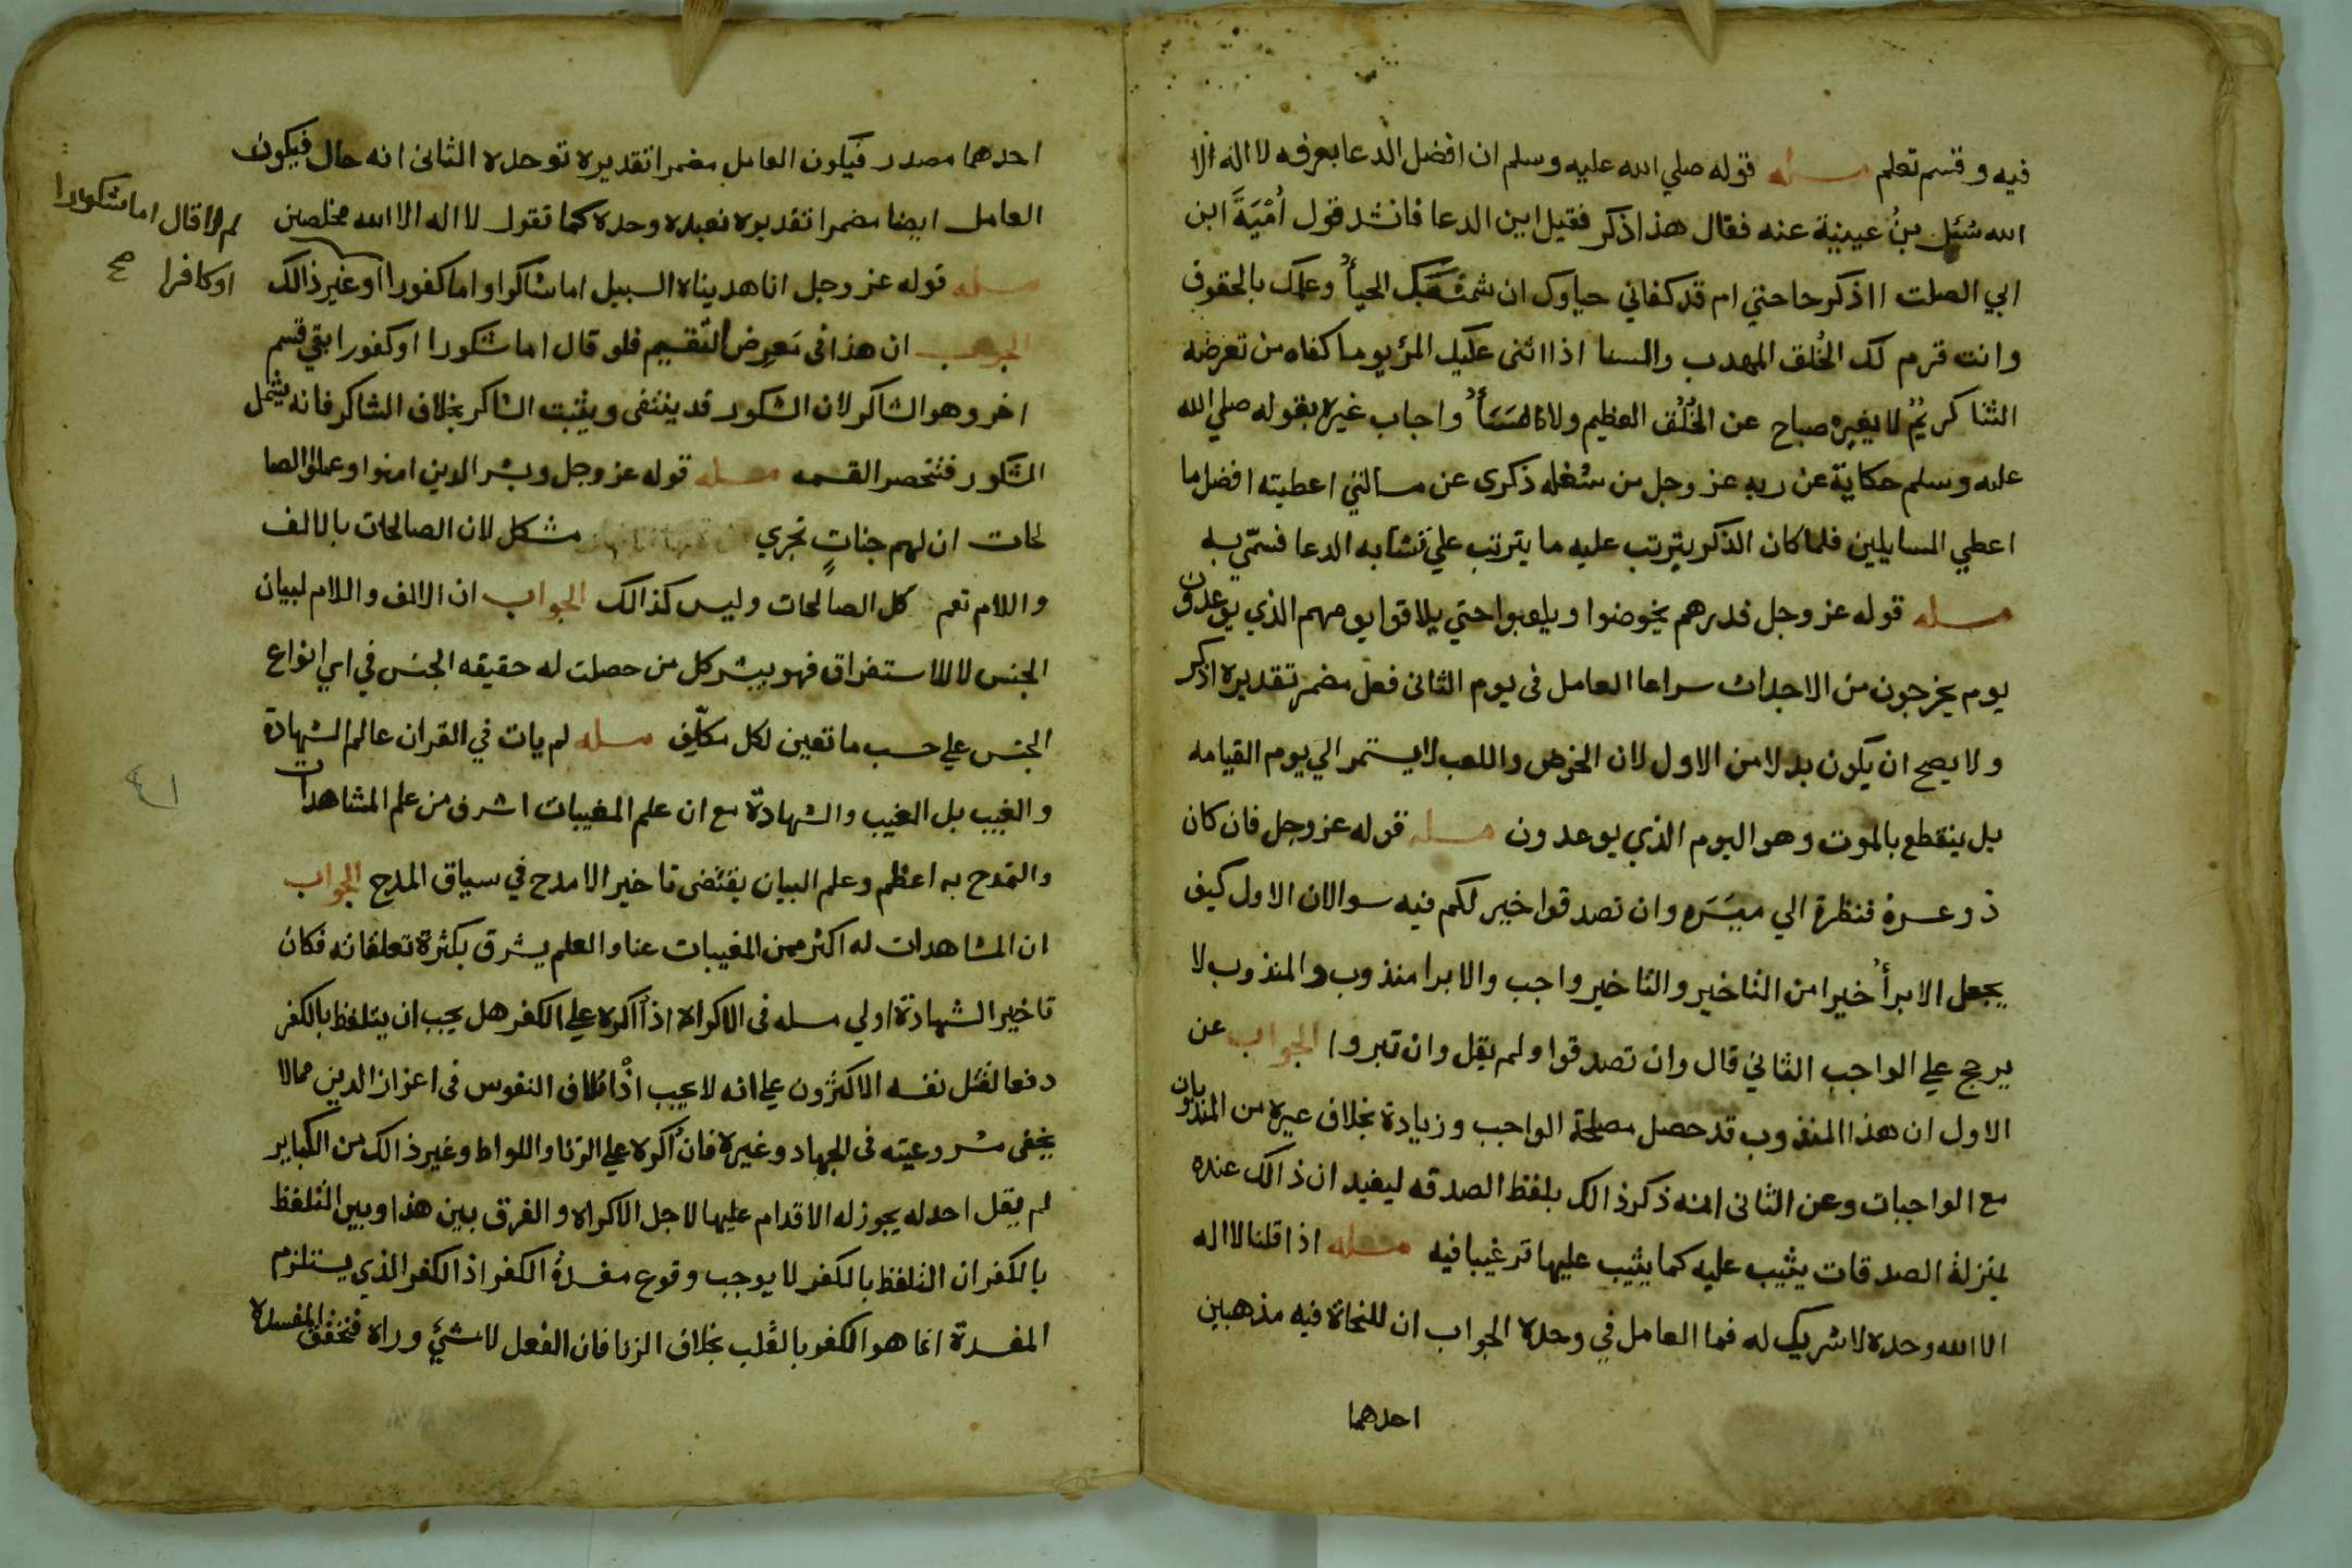 فيه وقسم تعلم مسله قوله صلي الله عليه وسلم ان افضل الدعا بعرفه لا اله الا
الله سُئل بنُ عيينية عنه فقال هذا ذكر فقيل اين الدعا فانشد قول اُمْيَةَ ابن
ابي الصلت ااذكر حاحتي ام قد كفاني حياوك ان شمئتك الحيأُ وعلمك بالحقوق
وانت قرم لك الخُلق المهدب والسنا اذا اثنى عليك المرؤ يوما كفاه من تعرضه
الثنا كريمٌ لا يغيره صباح عن الخُلُق العظيم ولا مَسَأُ واجاب غيره بقوله صلي الله
عليه وسلم حكاية عن ربه عز وجل من شغله ذكرى عن مسالتي اعطيته افضل ما
اعطي السايلين فلما كان الذكر يترتب عليه ما يترتب علي تشابه الدعا فسمّي به
مسله قوله عز وجل فدرهم يخوضوا ويلعبوا حتي يلاقوا يومهم الذي يوعدون
يوم يخرجون من الاجداث سراعا العامل فى يوم الثانى فعل مضمر تقديره اذكر
ولا يصح ان يكون بدلا من الاول لان الخوض واللعب لا يستمر الي يوم القيامه
بل ينقطع بالموت وهو اليوم الذي يوعدون مسله قوله عز وجل فان كان
ذو عسرة فنظرة الي ميسَره وان تصدقوا خير لكم فيه سوالان الاول كيف
يجعل الابرأُ خيرا من التاخير والتاخير واجب والابرا منذوب والمنذوب لا
يرجح علي الواجب الثاني قال وان تصدقوا ولم يقل وان تبروا الجواب عن
الاول ان هذا المنذوب قد حصل مصلحة الواجب وزيادة بخلاف غيره من المندوبات
مع الواجبات وعن الثانى انه ذكر ذالك بلفظ الصدقه ليفيد ان ذالك عنده
بمنزلة الصدقات يثيب عليه كما يثيب عليها ترغيبا فيه مسله اذا قلنا لا اله
الا الله وحده لا شريك له فما العامل في وحده الجواب ان للنحاة فيه مذهبين
احدهما
احدهما مصدر فيكون العامل مضمرا تقديره توحده الثانى انه حال فيكون
العامل ايضا مضمرا تقديره نعبده وحده كما تقول لا اله الا الله مخلصين
مسله قوله عز وجل انا هديناه السبيل اما شاكرا واما كفورا او غير ذالك
لم لا قال اما شكورا
او كافرا صح
الجواب ان هذا فى مَعرِض التقسيم فلو قال اما شكورا او كفورا بقي قسم
اخر وهو الشاكر لان الشكور قد ينتفى ويثبت الشاكر بخلاف الشاكر فانه يشمل
الشكور فتنحصر القسمه مسله قوله عز وجل وبشر الدين امنوا وعملوا الصا
لحات ان لهم جناتٍ تجري مشكل لان الصالحات بالالف
واللام تعم كل الصالحات وليس كذالك الجواب ان الالف واللام لبيان
الجنس لا للاستغراق فهو يبشر كل من حصلت له حقيقه الجنس في اي انواع
الجنس علي حسب ما تعين لكل مكلّف مسله لم يات في القران عالم الشهادة
والغيب بل الغيب والشهادة مع ان علم المغيبات اشرف من علم المشاهدات
٤١
والتمدح به اعظم وعلم البيان يقتضى تاخير الامدح في سياق المدح الجواب
ان المشاهدات له اكثر من المغيبات عنا والعلم يشرق بكثرة تعلقاته فكان
تاخير الشهادة اولي مسله فى الاكراه اذا اكره علي الكفر هل يجب ان يتلفظ بالكفر
دفعا لقتل نفسه الاكثرون علي انه لا يجب اذ اتلاف النفوس فى اعزاز الدين مما لا
يخفى مشروعيته فى الجهاد وغيره فان اكره علي الزنا واللواط وغير ذالك من الكباير
لم يقل احد له يجوز له الاقدام عليها لاجل الاكراه والفرق بين هذا وبين التلفظ
بالكفر ان التلفظ بالكفر لا يوجب وقوع مفسدةُ الكفر اذ الكفر الذي يستلزم
المفسدة انما هو الكفر بالقلب بخلاف الزنا فان الفعل لا شيَ وراه فتخفق المفسدة